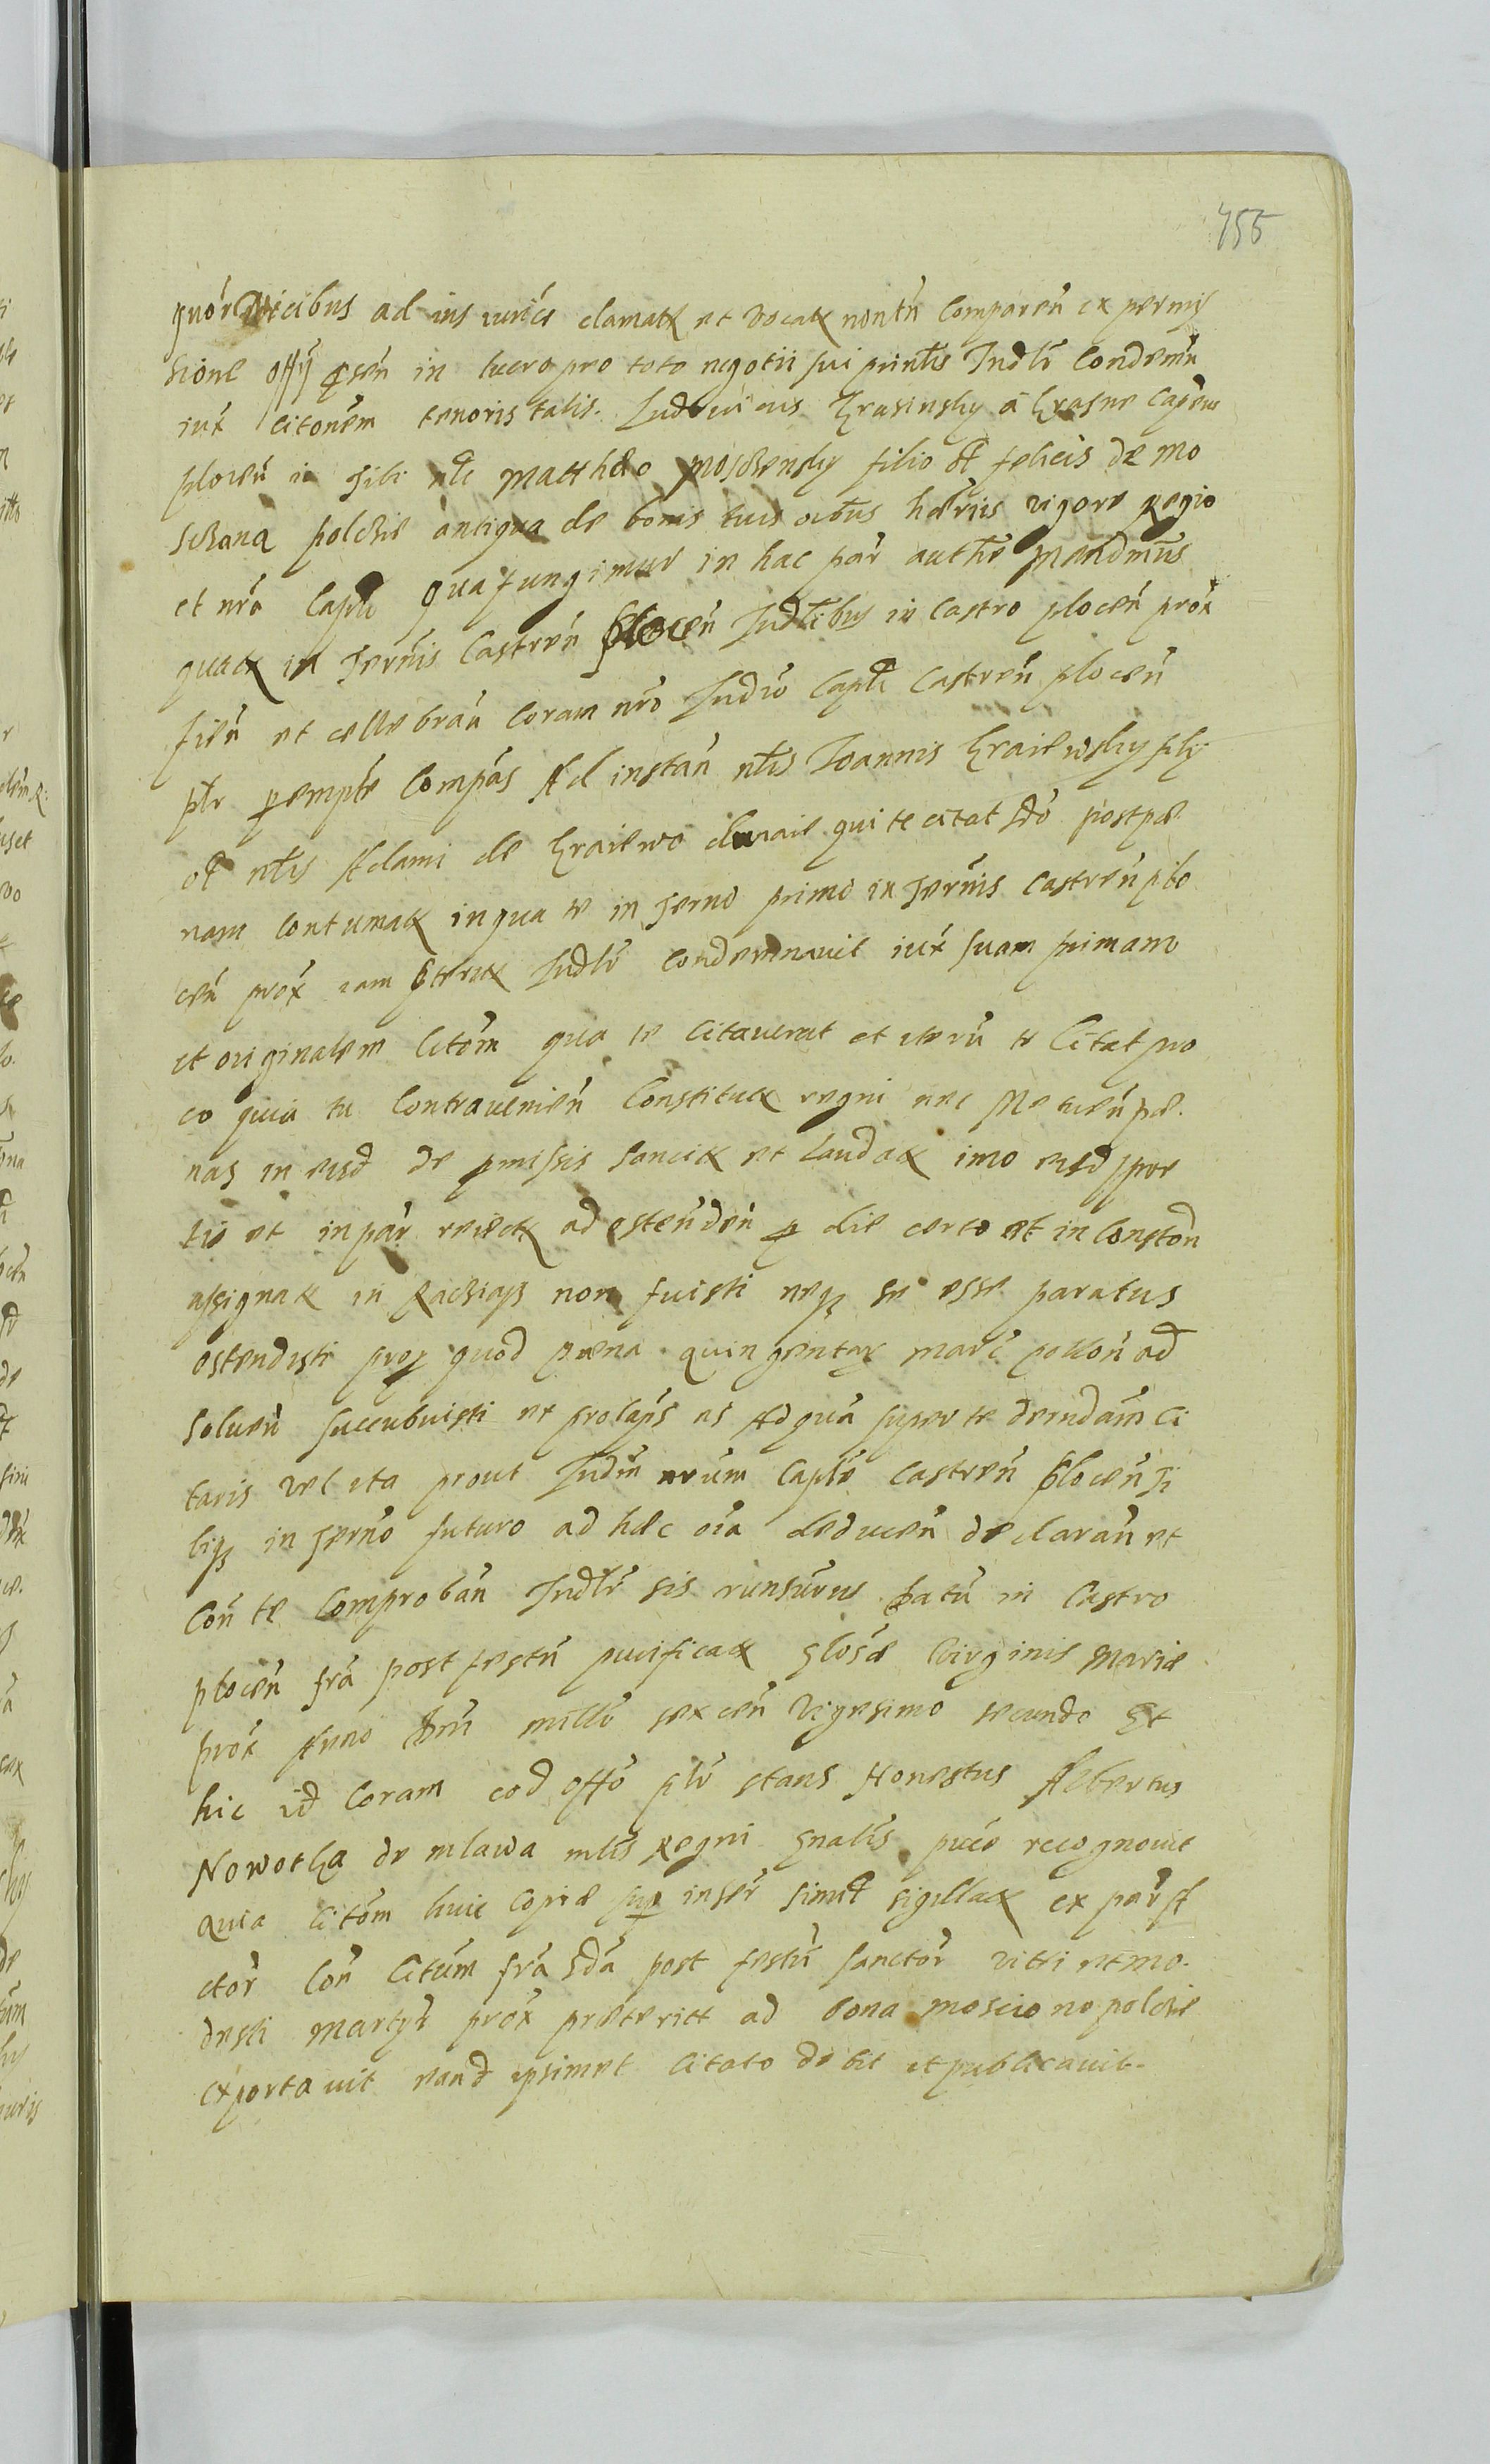 455
quor vicibus ad ius iurice clamatx et vocatx non tn Comparen ex permis
sione offy psen in lucro pro toto negotii sui prinlis Iudlr Condemn
iux citonem tenoris talis. Ludovicus Krasinsky a Krasne Capneus
plocen tibi nli Matthæo Moschensky filio olim felicis de Mo
schana polchie antiqua de bonis tuis oibus hæriis vigore Regio
et nra Capli qua fungimur in hac par authe Mandmus
quatx in Termis Castren plocen Iudlibus in Castro plocen prox
fien et cællebran Coram nro Iudio Capli Castren plocen
plr pempte Compas Ad instan nlis Ioannis Kraiewsky fily
ol nlis Adami de Kraiewo qui te citat ad postpæ
nam Contumatx in qua te in Termo primo in Termis Castren plo
cen prox iam pteritx Iudlr Condemnavit iux suam primam
et originalem litom qua te Citaverat et iterum te Citat pro
eo quia tu Contravenien Constitutx regni nec Metuen pæ.
nas in eisd de pmissis sancitx et laudatx imo eisd spre
tis et in par reiectx ad ostenden p die certo et in Conston
assignatx in Raciasz non fuisti neq se esse paratus
ostendisti prop quod pæna quingentar marc pollon ad
solven succubuisti et prolaps es Ad qua super te derndam Ci
taris vel ita prout Iudm nrum Caple Castren plocen ti
biq in Termo futuro ad hæc oia deducen declaran et
Con te Comproban Iudlr sis runsurus Datu in Castro
plocen fra post festu purificatx glosæ Virginis Mariæ
prox Anno Dni millo sexcen vigesimo secundo Et
hic id Coram eod offo plr stans Honestus Albertus
Nowotka de mlawa mlis Regni gnalis puce recognovit
Quia litom huic Copiæ sup inser simil sigillatx ex par
ctor Con Citum fra 3da post festu sanctor viti et mo.
desti Martyr prox præteritt ad bona moscio no polchie
exportavit eand ipsimet Citato debit et publicavit.